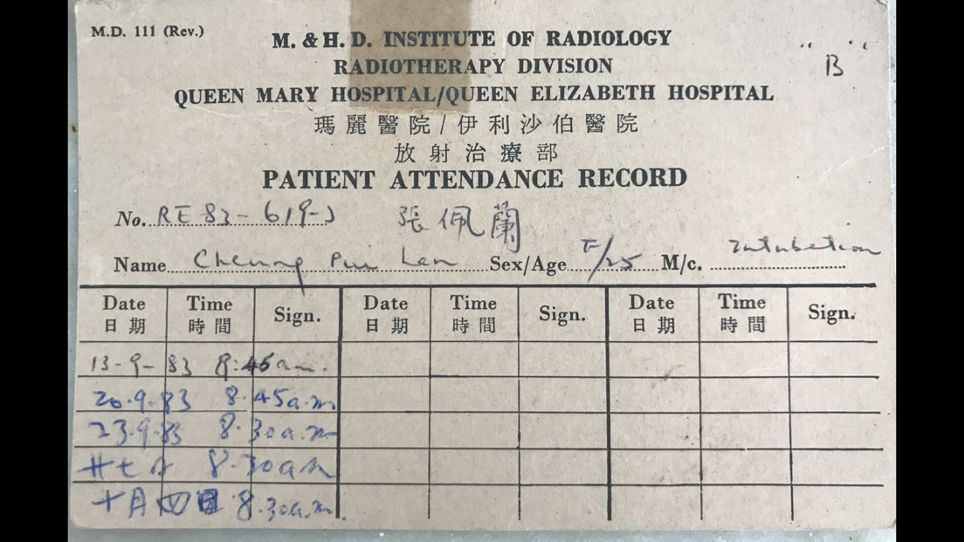 M.D. 111 (Rev.)
M. & H. D. INSTITUTE OF RADIOLOGY
" B "
RADIOTHERAPY DIVISION
QUEEN MARY HOSPITAL/QUEEN ELIZABETH HOSPITAL
瑪麗醫院/伊利沙伯醫院
放射治療部
PATIENT ATTENDANCE RECORD
No. RE 83-619-J 張佩蘭
Name Cheung Pui Lan Sex/Age F/25 M/c. Intubation
Date Time Sign. Date Time Sign. Date Time Sign.
日期 時間 日期 時間 日期 時間
13-9-83 8:45a.m.
20.9.83 8.45a.m
23.9.83 8.30a.m
廿七日 8.30am
十月四日 8.30a.m.